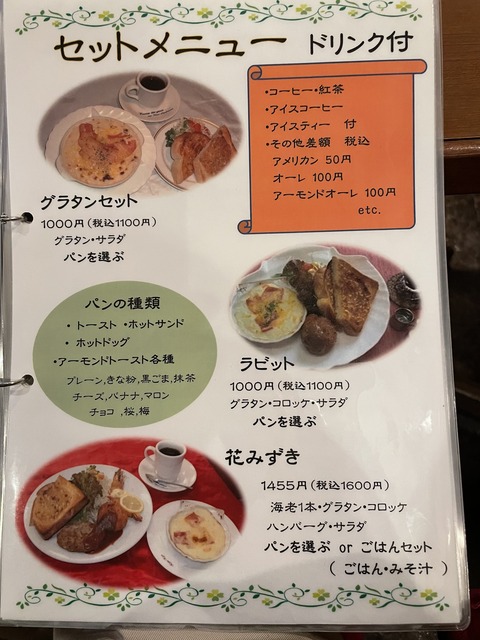 セットメニュー ドリンク付
・コーヒー・紅茶
・アイスコーヒー
・アイスティー 付
・その他差額 税込
アメリカン 50円
オーレ 100円
アーモンドオーレ 100円
etc.
グラタンセット
1000円(税込1100円)
グラタン・サラダ
パンを選ぶ
パンの種類
・トースト ・ホットサンド
・ホットドッグ
・アーモンドトースト各種
プレーン,きな粉,黒ごま,抹茶
チーズ,バナナ,マロン
チョコ ,桜,梅
ラビット
1000円(税込1100円)
グラタン・コロッケ・サラダ
パンを選ぶ
花みずき
1455円(税込1600円)
海老1本・グラタン・コロッケ
ハンバーグ・サラダ
パンを選ぶ or ごはんセット
(ごはん・みそ汁)